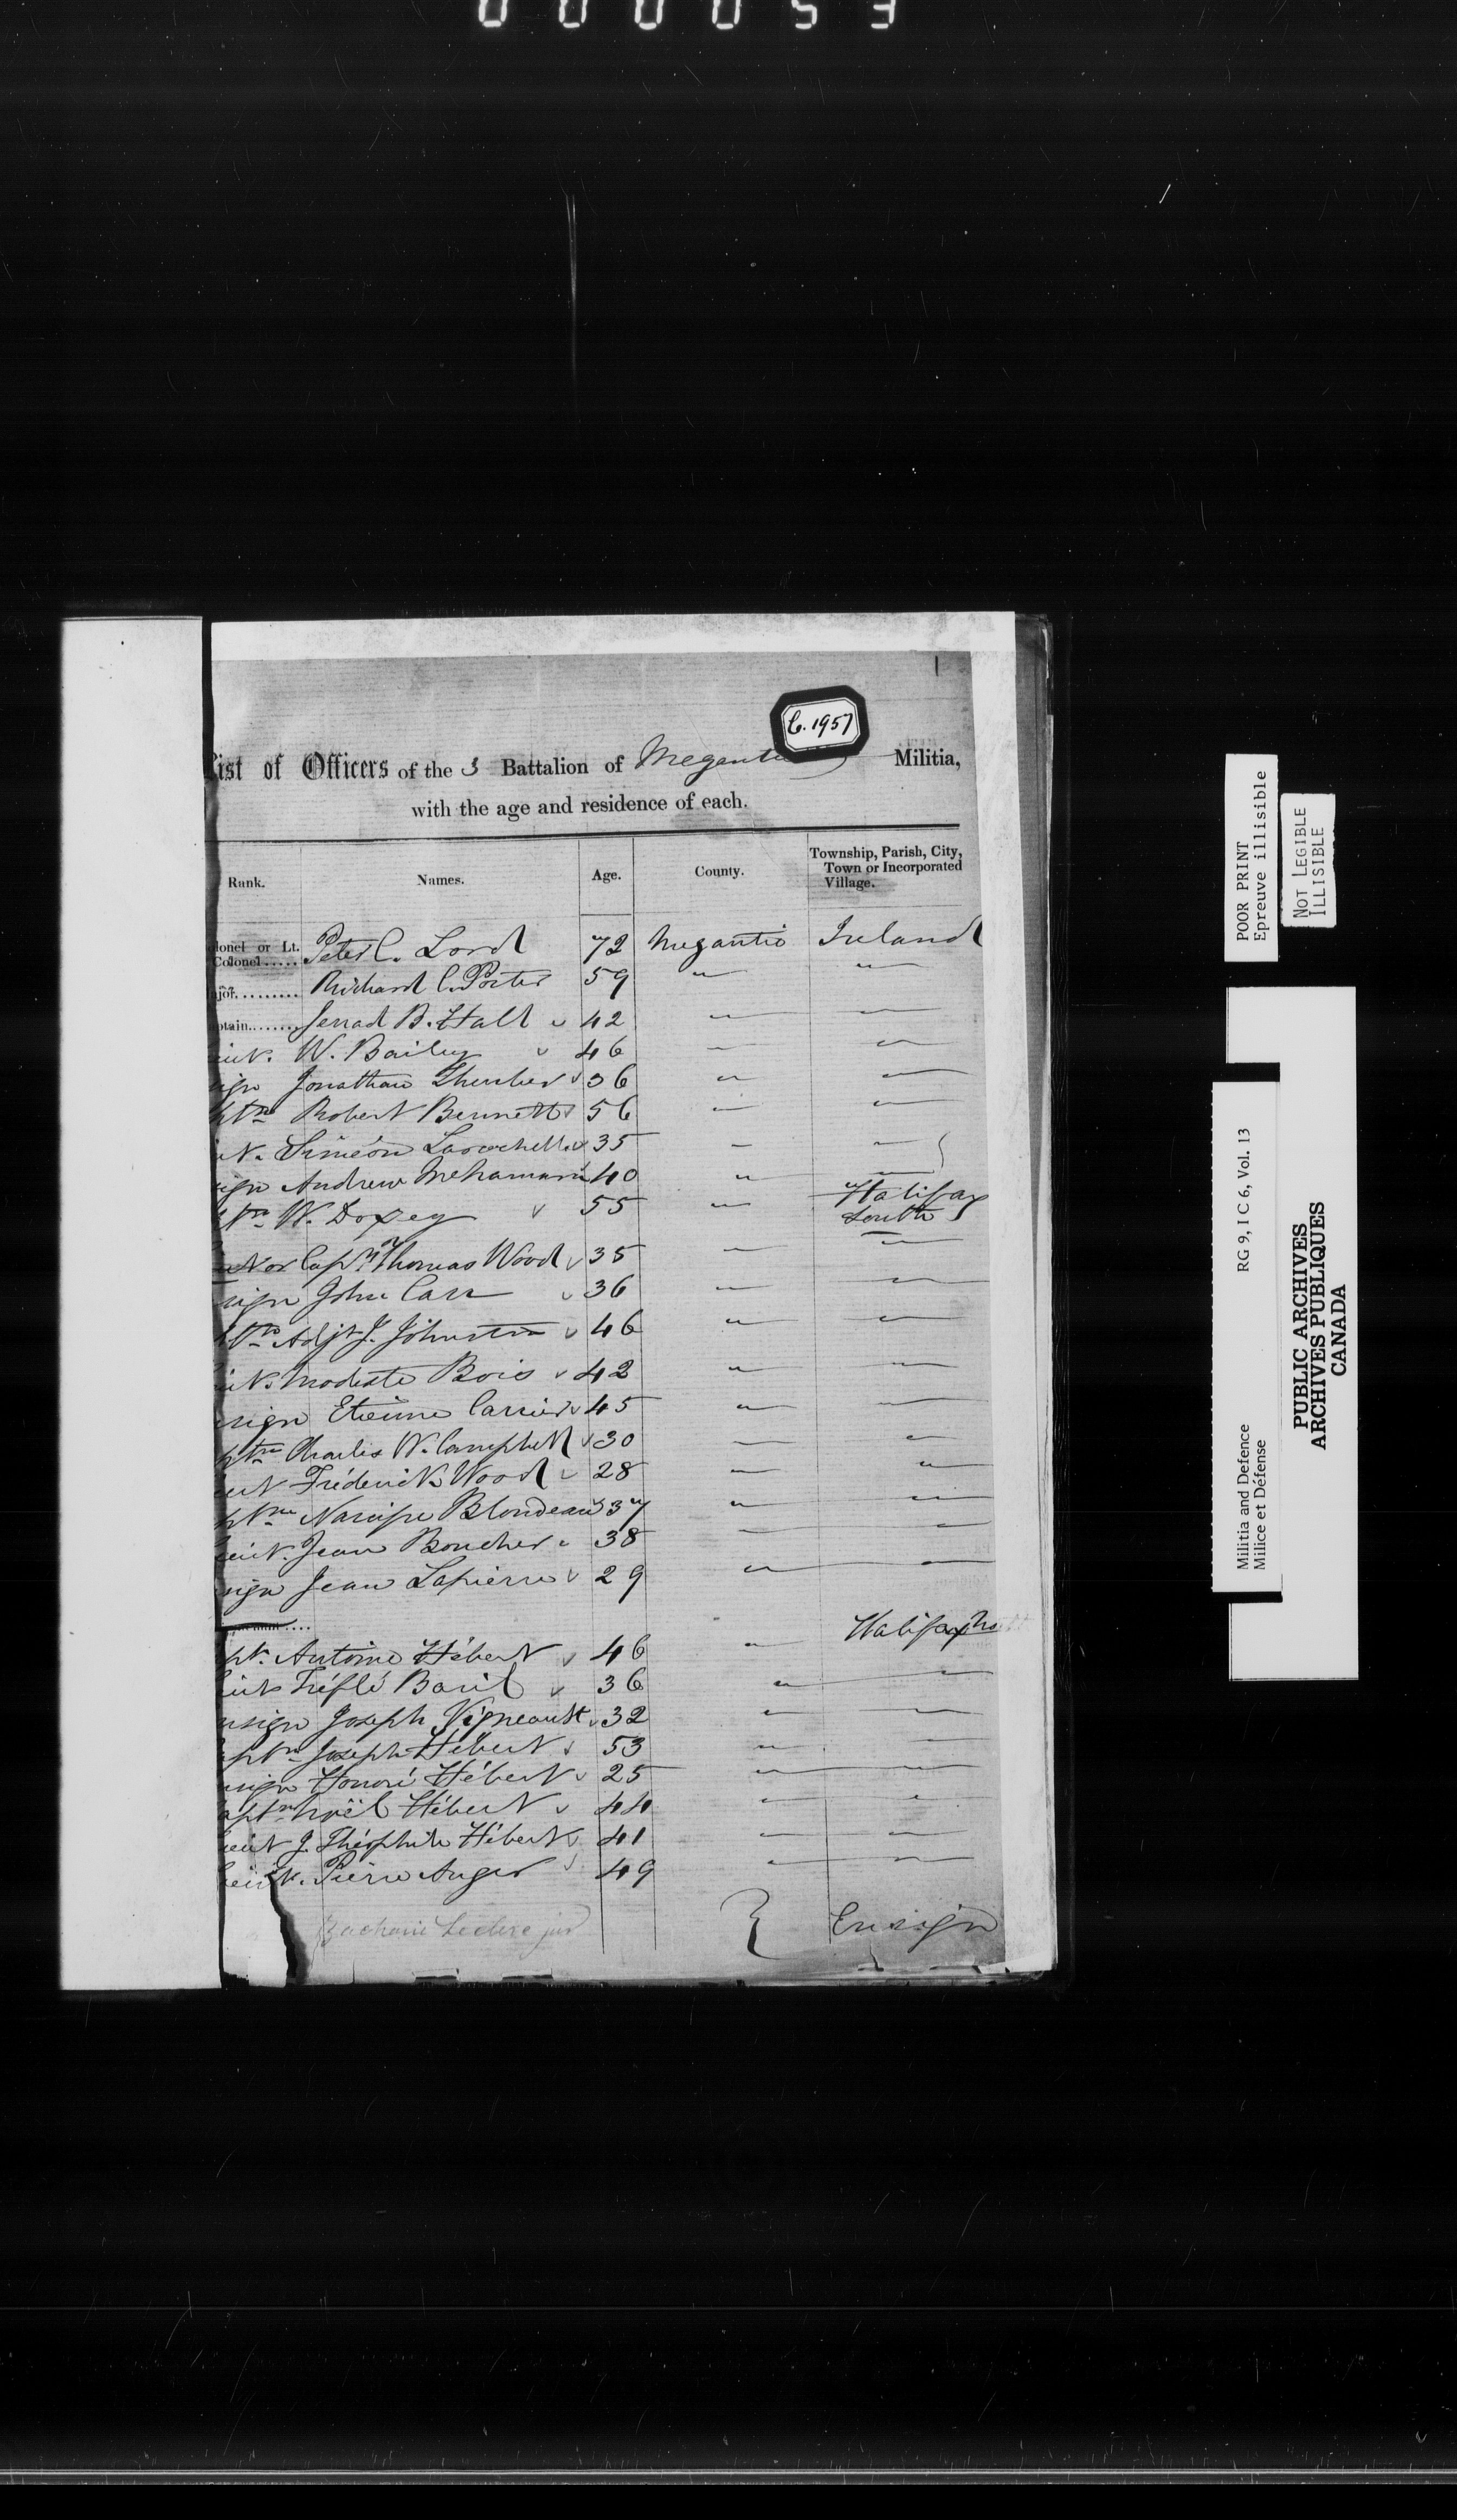 000053
1
C.1957
List of Officers of the 3 Battalion of Megantic Militia,
with the age and residence of each.
Rank. Names. Age. County. Township, Parish, City, Town or Incorporated Village.
lonel or Lt. Colonel..... Peter C. Lord 72 Megantic Ireland
ajor......... Richard C. Porter 59 " "
ptain........ Jerrad B. Hall 42 " "
ieut. W. Bailey 46 " "
ign Jonathan Thurber 36 " "
ptn Robert Bennett 56 " "
ut. Siméon Larochelle 35 " "
sign Andrew 40 " "
ptn W. Doxey 55 " Halifax South
Capt. Thomas Wood 35 " "
sign John Carr 36 " "
ptn Adjt J. Johnston 46 " "
ieut. Modeste Bois 42 " "
nsign Etienne Carrier 45 " "
ptn Charles W. Campbell 30 " "
eut Fréderick Wood 28 " "
ptn Narcisse Blondeau 37 " "
ieut. Jean Boucher 38 " "
sign Jean Lapierre 29 " "
pt. Antoine Hébert 46 " Halifax No
ieut Tréflé Baril 36 " "
nsign Joseph Vigneault 32 " "
aptn Joseph Hébert 53 " "
nsign Honoré Hébert 25 " "
aptn Noël Hébert 44 " "
ieut J. Théophile Hébert 41 " "
Lieut. Pierre Auger 49 " "
Zacharie Leclerc jur } Ensign
POOR PRINT
Epreuve illisible
NOT LEGIBLE
ILLISIBLE
Militia and Defence RG 9, I C 6, Vol. 13
Milice et Défense
PUBLIC ARCHIVES
ARCHIVES PUBLIQUES
CANADA